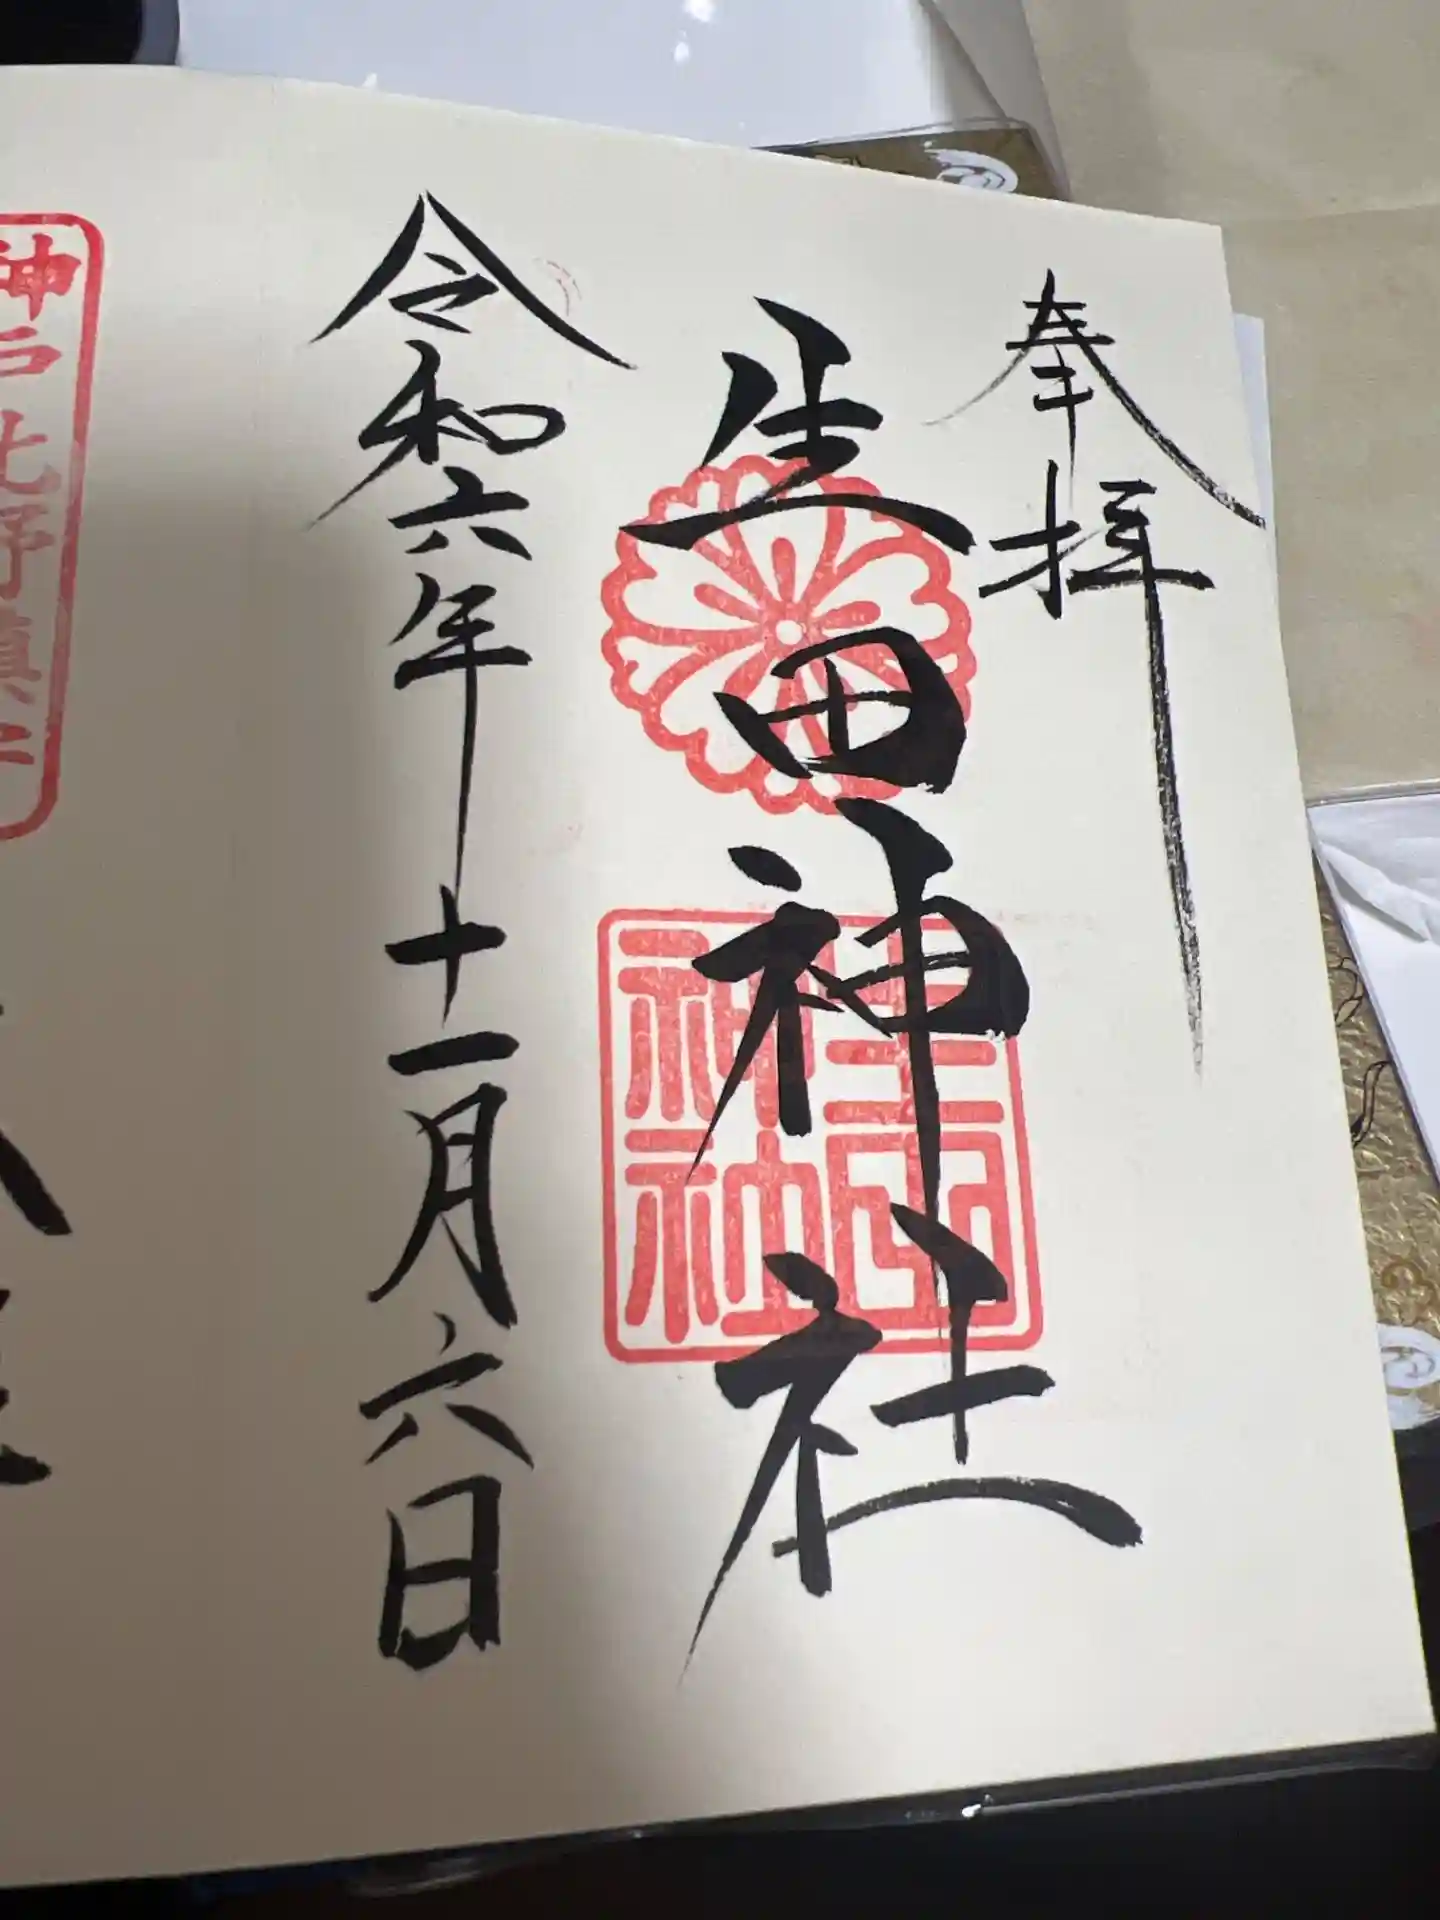 奉拝
生田神社
生田神社
令和六年十一月六日
神戸北野鎮